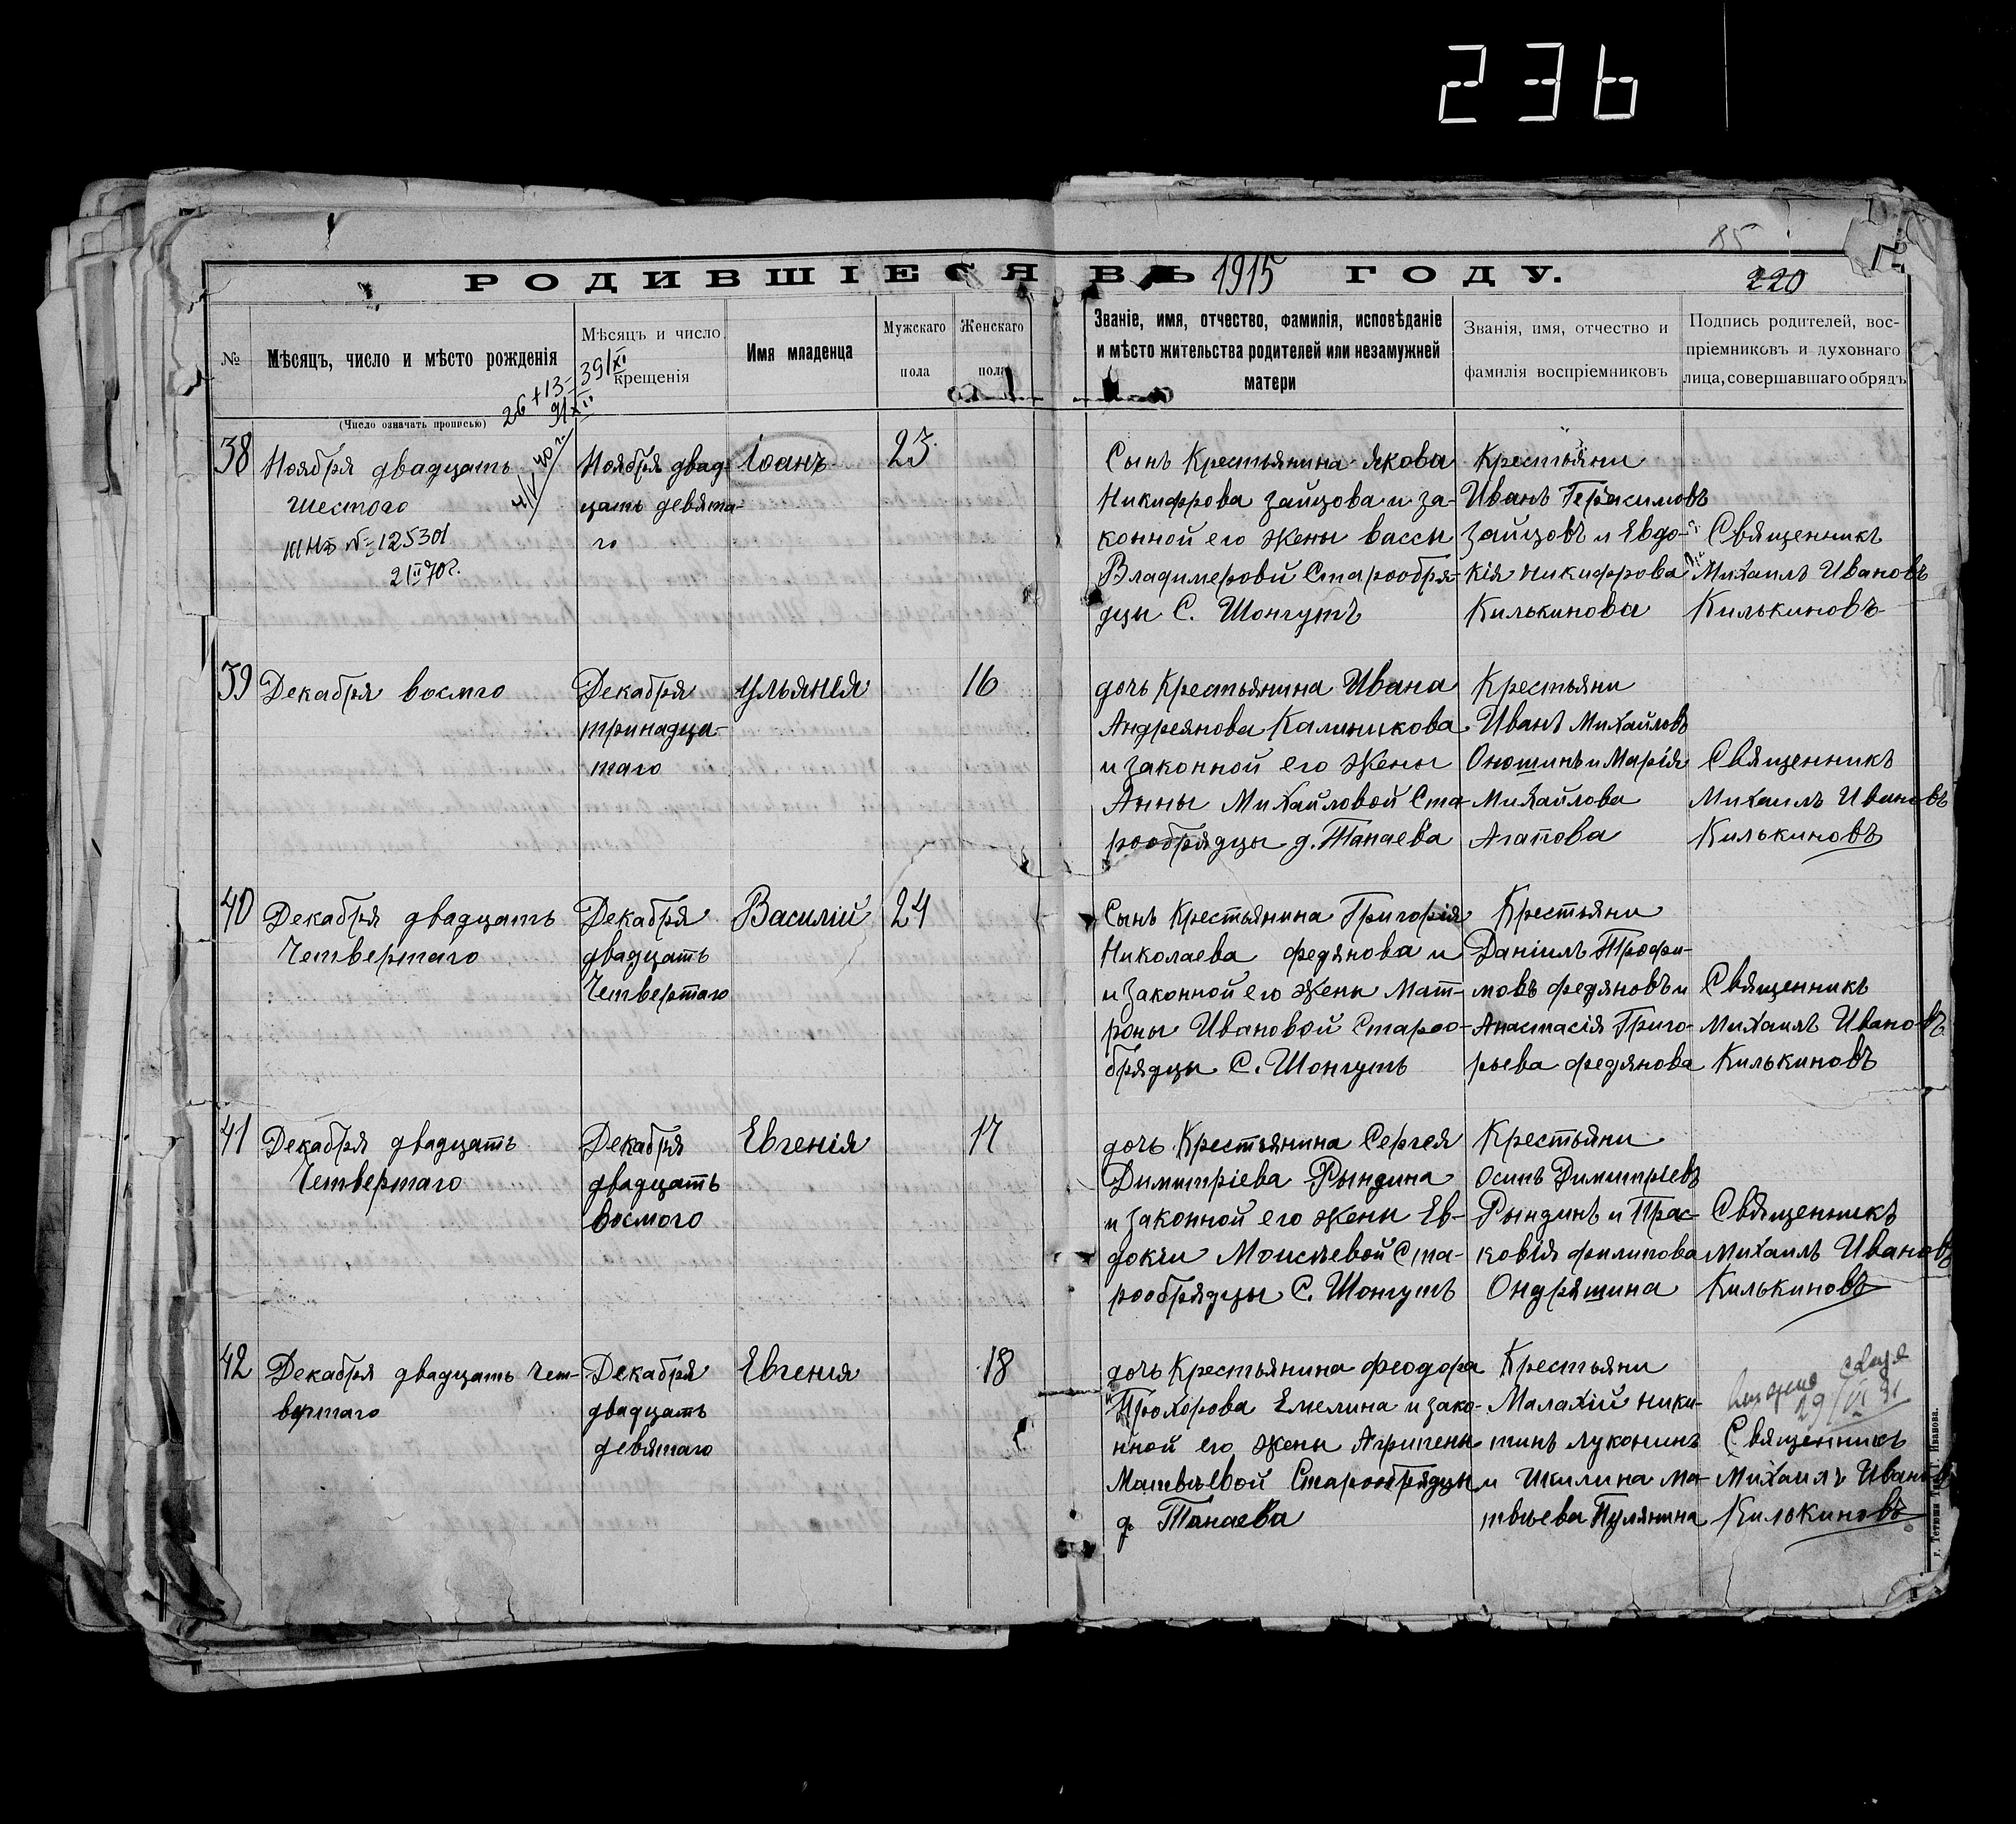 236
85
РОДИВШІЕСЯ ВЪ 1915 ГОДУ.
220
№
Мѣсяцъ, число и мѣсто рожденія
(Число означать прописью)
Мѣсяцъ и число
крещенія
Имя младенца
Мужскаго
пола
Женскаго
пола
Званіе, имя, отчество, фамилія, исповѣданіе
и мѣсто жительства родителей или незамужней
матери
Званія, имя, отчество и
фамилія воспріемниковъ
Подпись родителей, вос-
пріемниковъ и духовнаго
лица, совершавшаго обрядъ
26+13=39/XI
9/XII
38
Ноября двадцать
шестого
№ 125301
2/II 70г.
4/V 40 г.
Ноября двад-
цать девята-
го
Іоанъ
23
Сынъ Крестьянина Якова
Никифрова Зайцова и за-
конной его жены Вассы
Владимеровй Старообря-
дцы С. Шонгутъ
Крестьяни
Иванъ Герасимовъ
Зайцовъ и Евдо-
кія Никифрова
Килькинова
Священникъ
Михаилъ Ивановъ
Килькиновъ
39
Декабря восмго
Декабря
тринадца-
таго
Ульянія
16
дочь Крестьянина Ивана
Андреянова Калиникова
и законной его жены
Анны Михайловой Ста-
рообрядцы д. Танаева
Крестьяни
Иванъ Михайловъ
Оношинъ и Марія
Михайлова
Агапова
Священникъ
Михаилъ Ивановъ
Килькиновъ
40
Декабря двадцать
Четвертаго
Декабря
двадцать
Четвертаго
Василій
24
Сынъ Крестьянина Григорія
Николаева Федянова и
и законной его жены Мат-
роны Ивановой Староо-
брядцы С. Шонгутъ
Крестьяни
Даніилъ Трофи-
мовъ Федяновъ и
Анастасія Григо-
рьева Федянова
Священникъ
Михаилъ Ивановъ
Килькиновъ
41
Декабря двадцать
Четвертаго
Декабря
двадцать
восмого
Евгенія
17
дочь Крестьянина Сергея
Димитріева Рындина
и законной его жены Ев-
докіи Моисѣевой Ста-
рообрядцы С. Шонгутъ
Крестьяни
Осипъ Димитріевъ
Рындинъ и Прас-
ковія Филипова
Ондряшина
Священникъ
Михаилъ Ивановъ
Килькиновъ
42
Декабря двадцать чет-
вертаго
Декабря
двадцать
девятаго
Евгенія
18
дочь Крестьянина Феодора
Прохорова Емелина и зако-
нной его жены Агрипены
Матвѣевой Старообрядцы
д. Танаева
Крестьяни
Малахій Ники-
тинъ Луконинъ
и Икилина Ма-
твѣева Пулянина
29/VI 31
Священникъ
Михаилъ Ивановъ
Килькиновъ